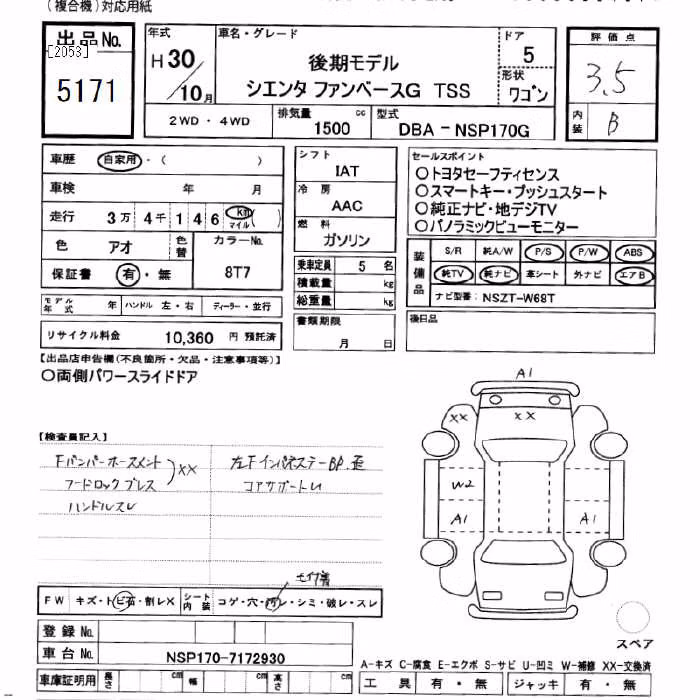 (複合機)対応用紙
出品No.
[2053]
5171
年式
H30/10月
車名・グレード
後期モデル
シエンタ ファンベースG TSS
ドア
5
形状
ワゴン
評価点
3.5
内装
B
2WD・4WD
排気量 cc
1500
型式
DBA-NSP170G
車歴 自家用・( )
車検 年 月
走行 3万4千146 km マイル( )
色 アオ
色替
カラーNo.
8T7
保証書 有・無
シフト
IAT
冷房
AAC
燃料
ガソリン
乗車定員 5名
積載量 kg
総重量 kg
セールスポイント
○トヨタセーフティセンス
○スマートキー・プッシュスタート
○純正ナビ・地デジTV
○パノラミックビューモニター
装備品
S/R 純A/W P/S P/W ABS
純TV 純ナビ 革シート 外ナビ エアB
ナビ型番: NSZT-W68T
モデル年式 年 ハンドル 左・右 ディーラー・並行
リサイクル料金 10,360 円 預託済
書類期限
月 日
後日品
【出品店申告欄(不良箇所・欠品・注意事項等)】
○両側パワースライドドア
【検査員記入】
Fバンパーホースメント
フードロックブレス
XX
ハンドルスレ
左Fインパネステー BP.歪
コアサポートU
A1
XX
XX
W2
A1
A1
FW キズ・トビ石・割レX
シート内装 コゲ・穴・汚レ・シミ・破レ・スレ
登録No.
車台No. NSP170-7172930
車庫証明用 長さ cm 幅 cm 高さ cm
スペア
A-キズ C-腐食 E-エクボ S-サビ U-凹ミ W-補修 XX-交換済
工具 有・無 ジャッキ 有・無